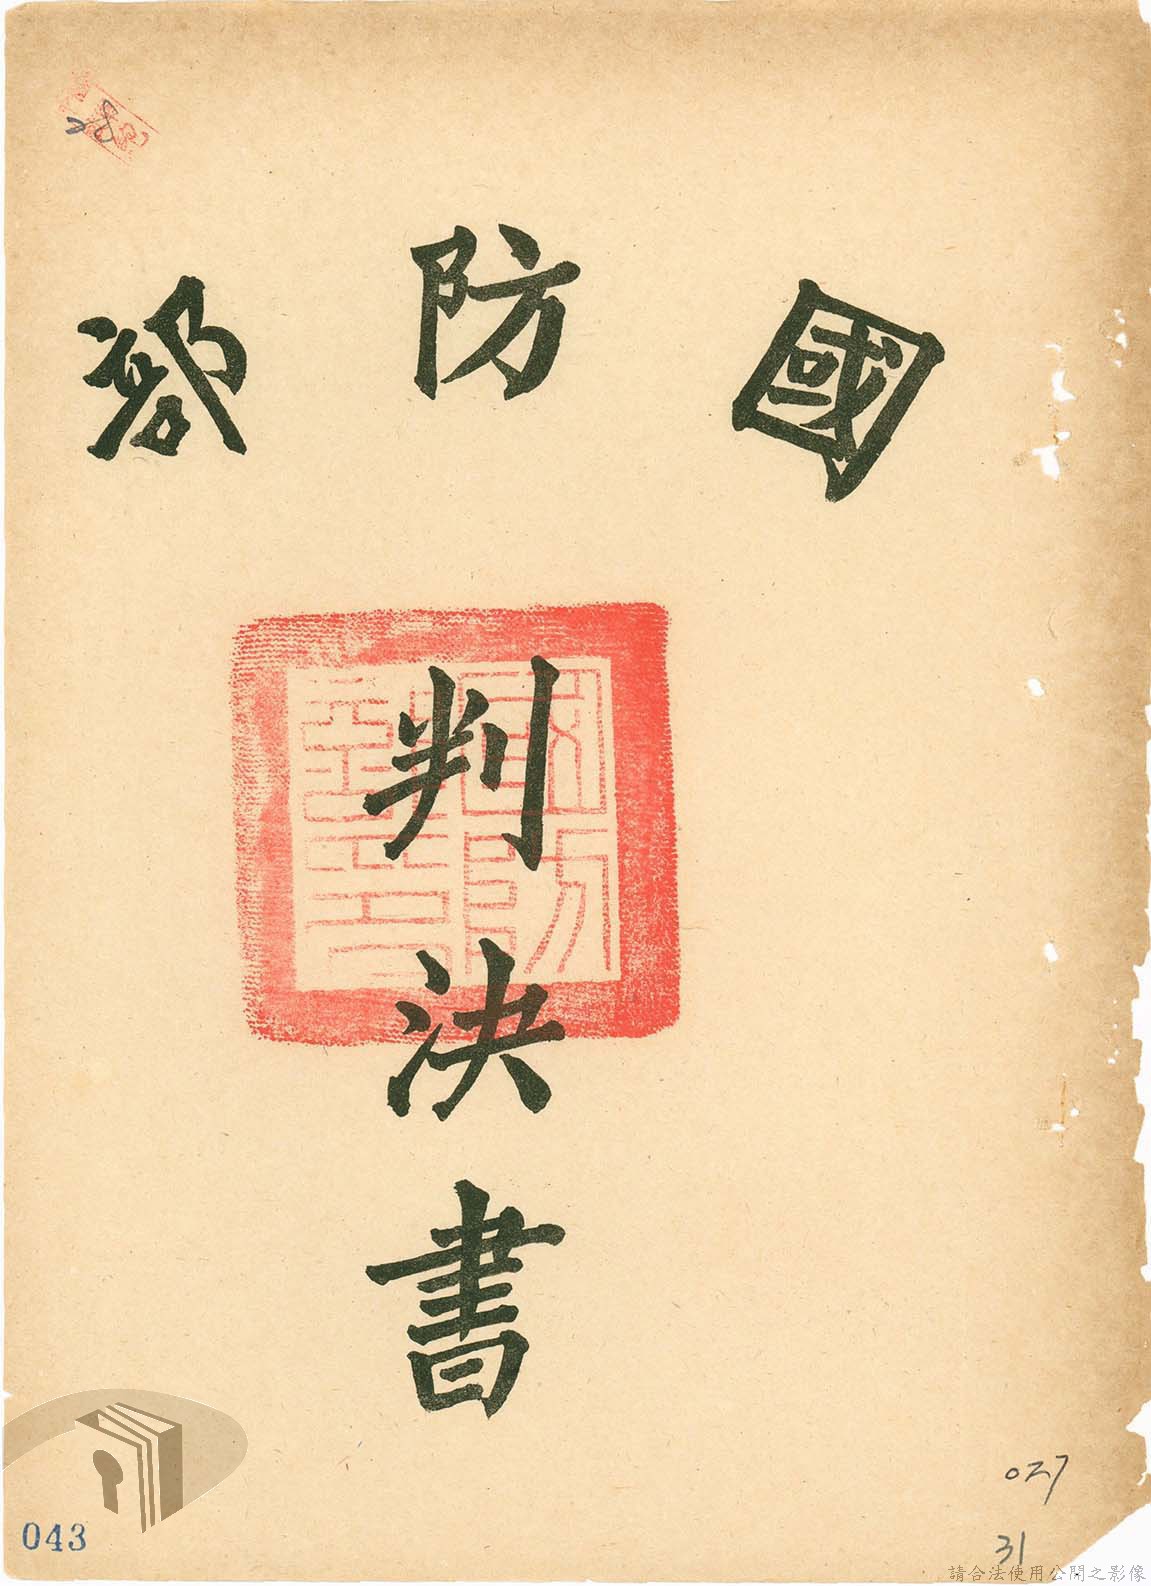 28
國防部
判決書
027
31
043
請合法使用公開之影像